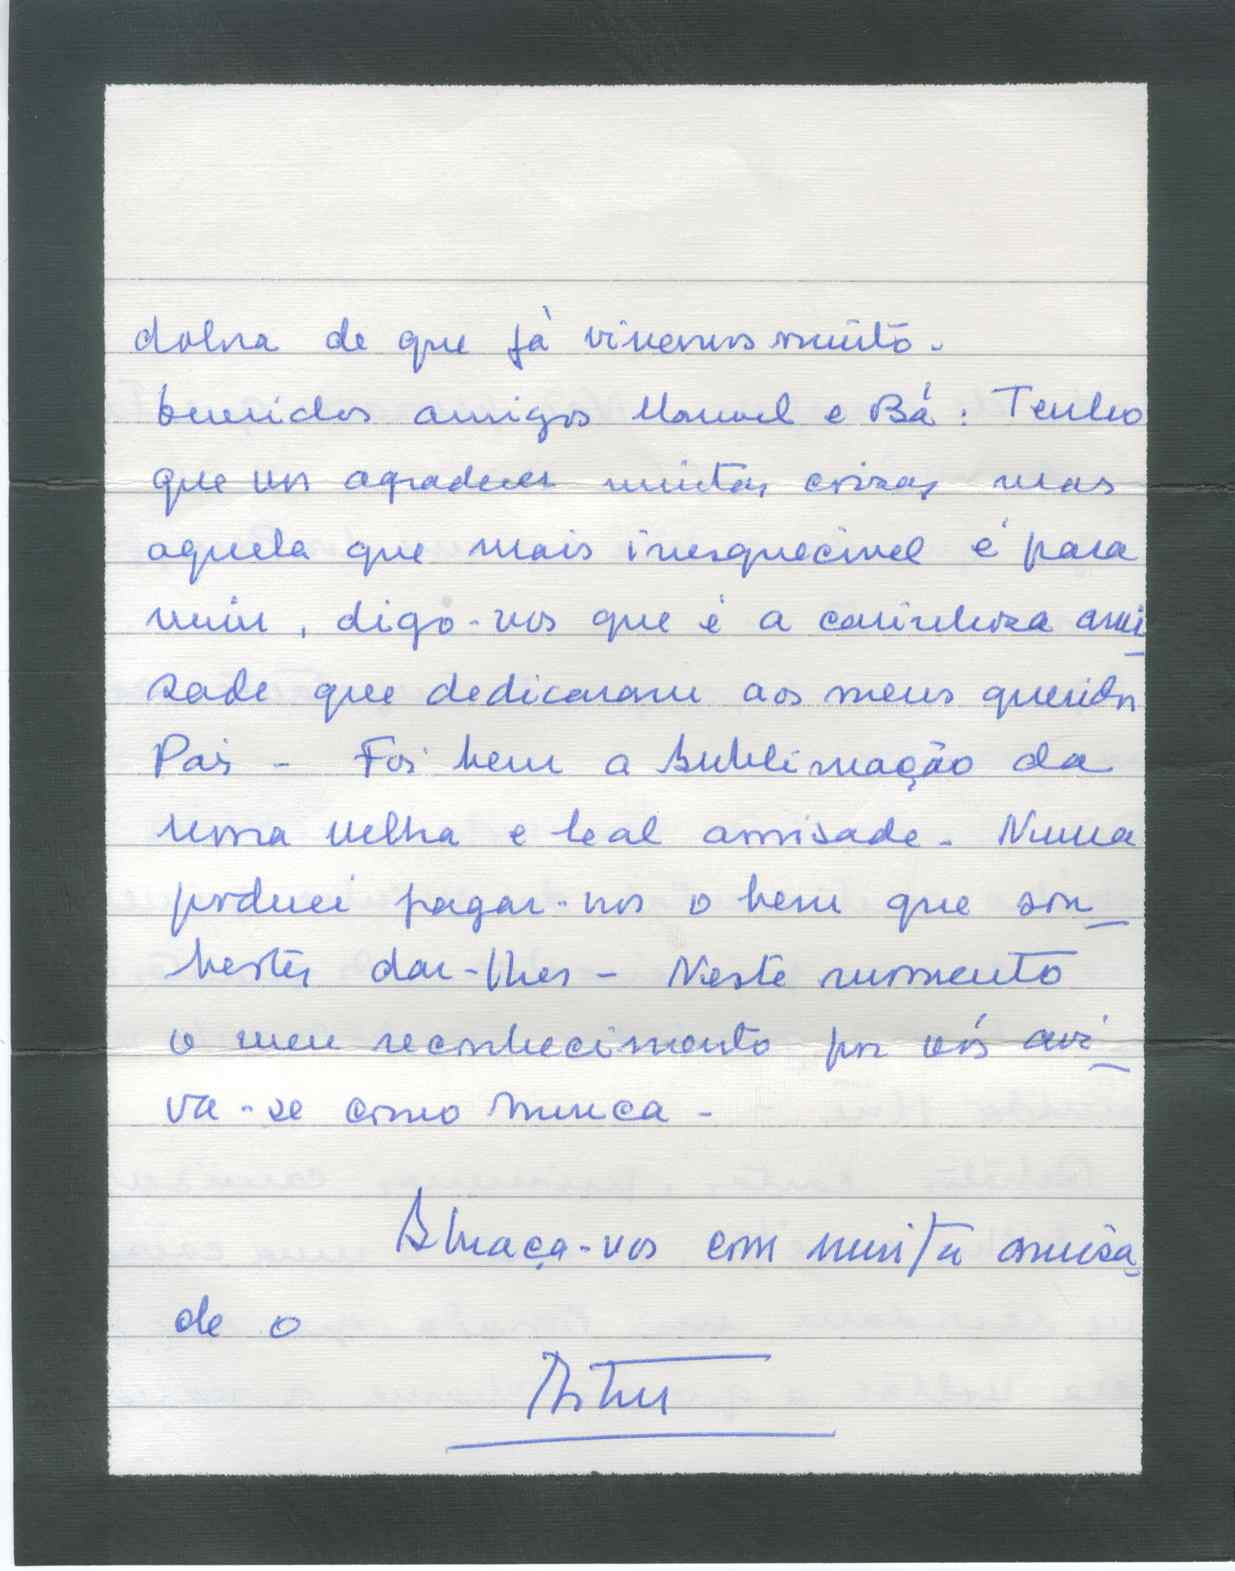 dolsa de que já vivemos muito.
Queridos amigos Manuel e Bá: Tenho
que vos agradecer muitas coisas, mas
aquela que mais inesquecível é para
mim, digo-vos que é a carinhosa ami
zade que dedicaram aos meus queridos
Pais - Foi bem a sublimação da
nossa velha e leal amisade. Nunca
poderei pagar-vos o bem que sou_
bestes dar-lhes - Neste momento
o meu reconhecimento por vós avi_
va-se como nunca -
Abraça-vos com muita amisa_
de o
Artur